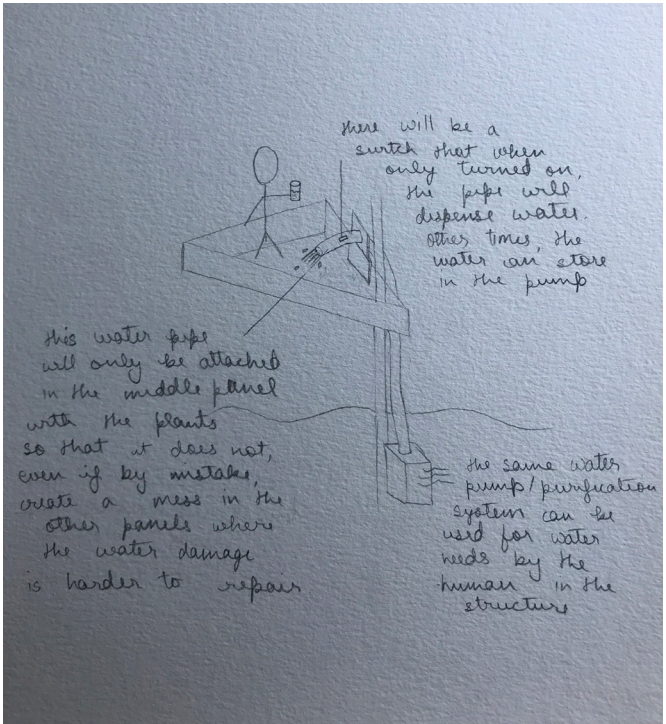 there will be a
switch that when
only turned on,
the pipe will
dispense water.
Other times, the
water can store
in the pump
this water pipe
will only be attached
in the middle panel
with the plants
so that it does not,
even if by mistake,
create a mess in the
other panels where
the water damage
is harder to repair
the same water
pump/purification
system can be
used for water
needs by the
human in the
structure